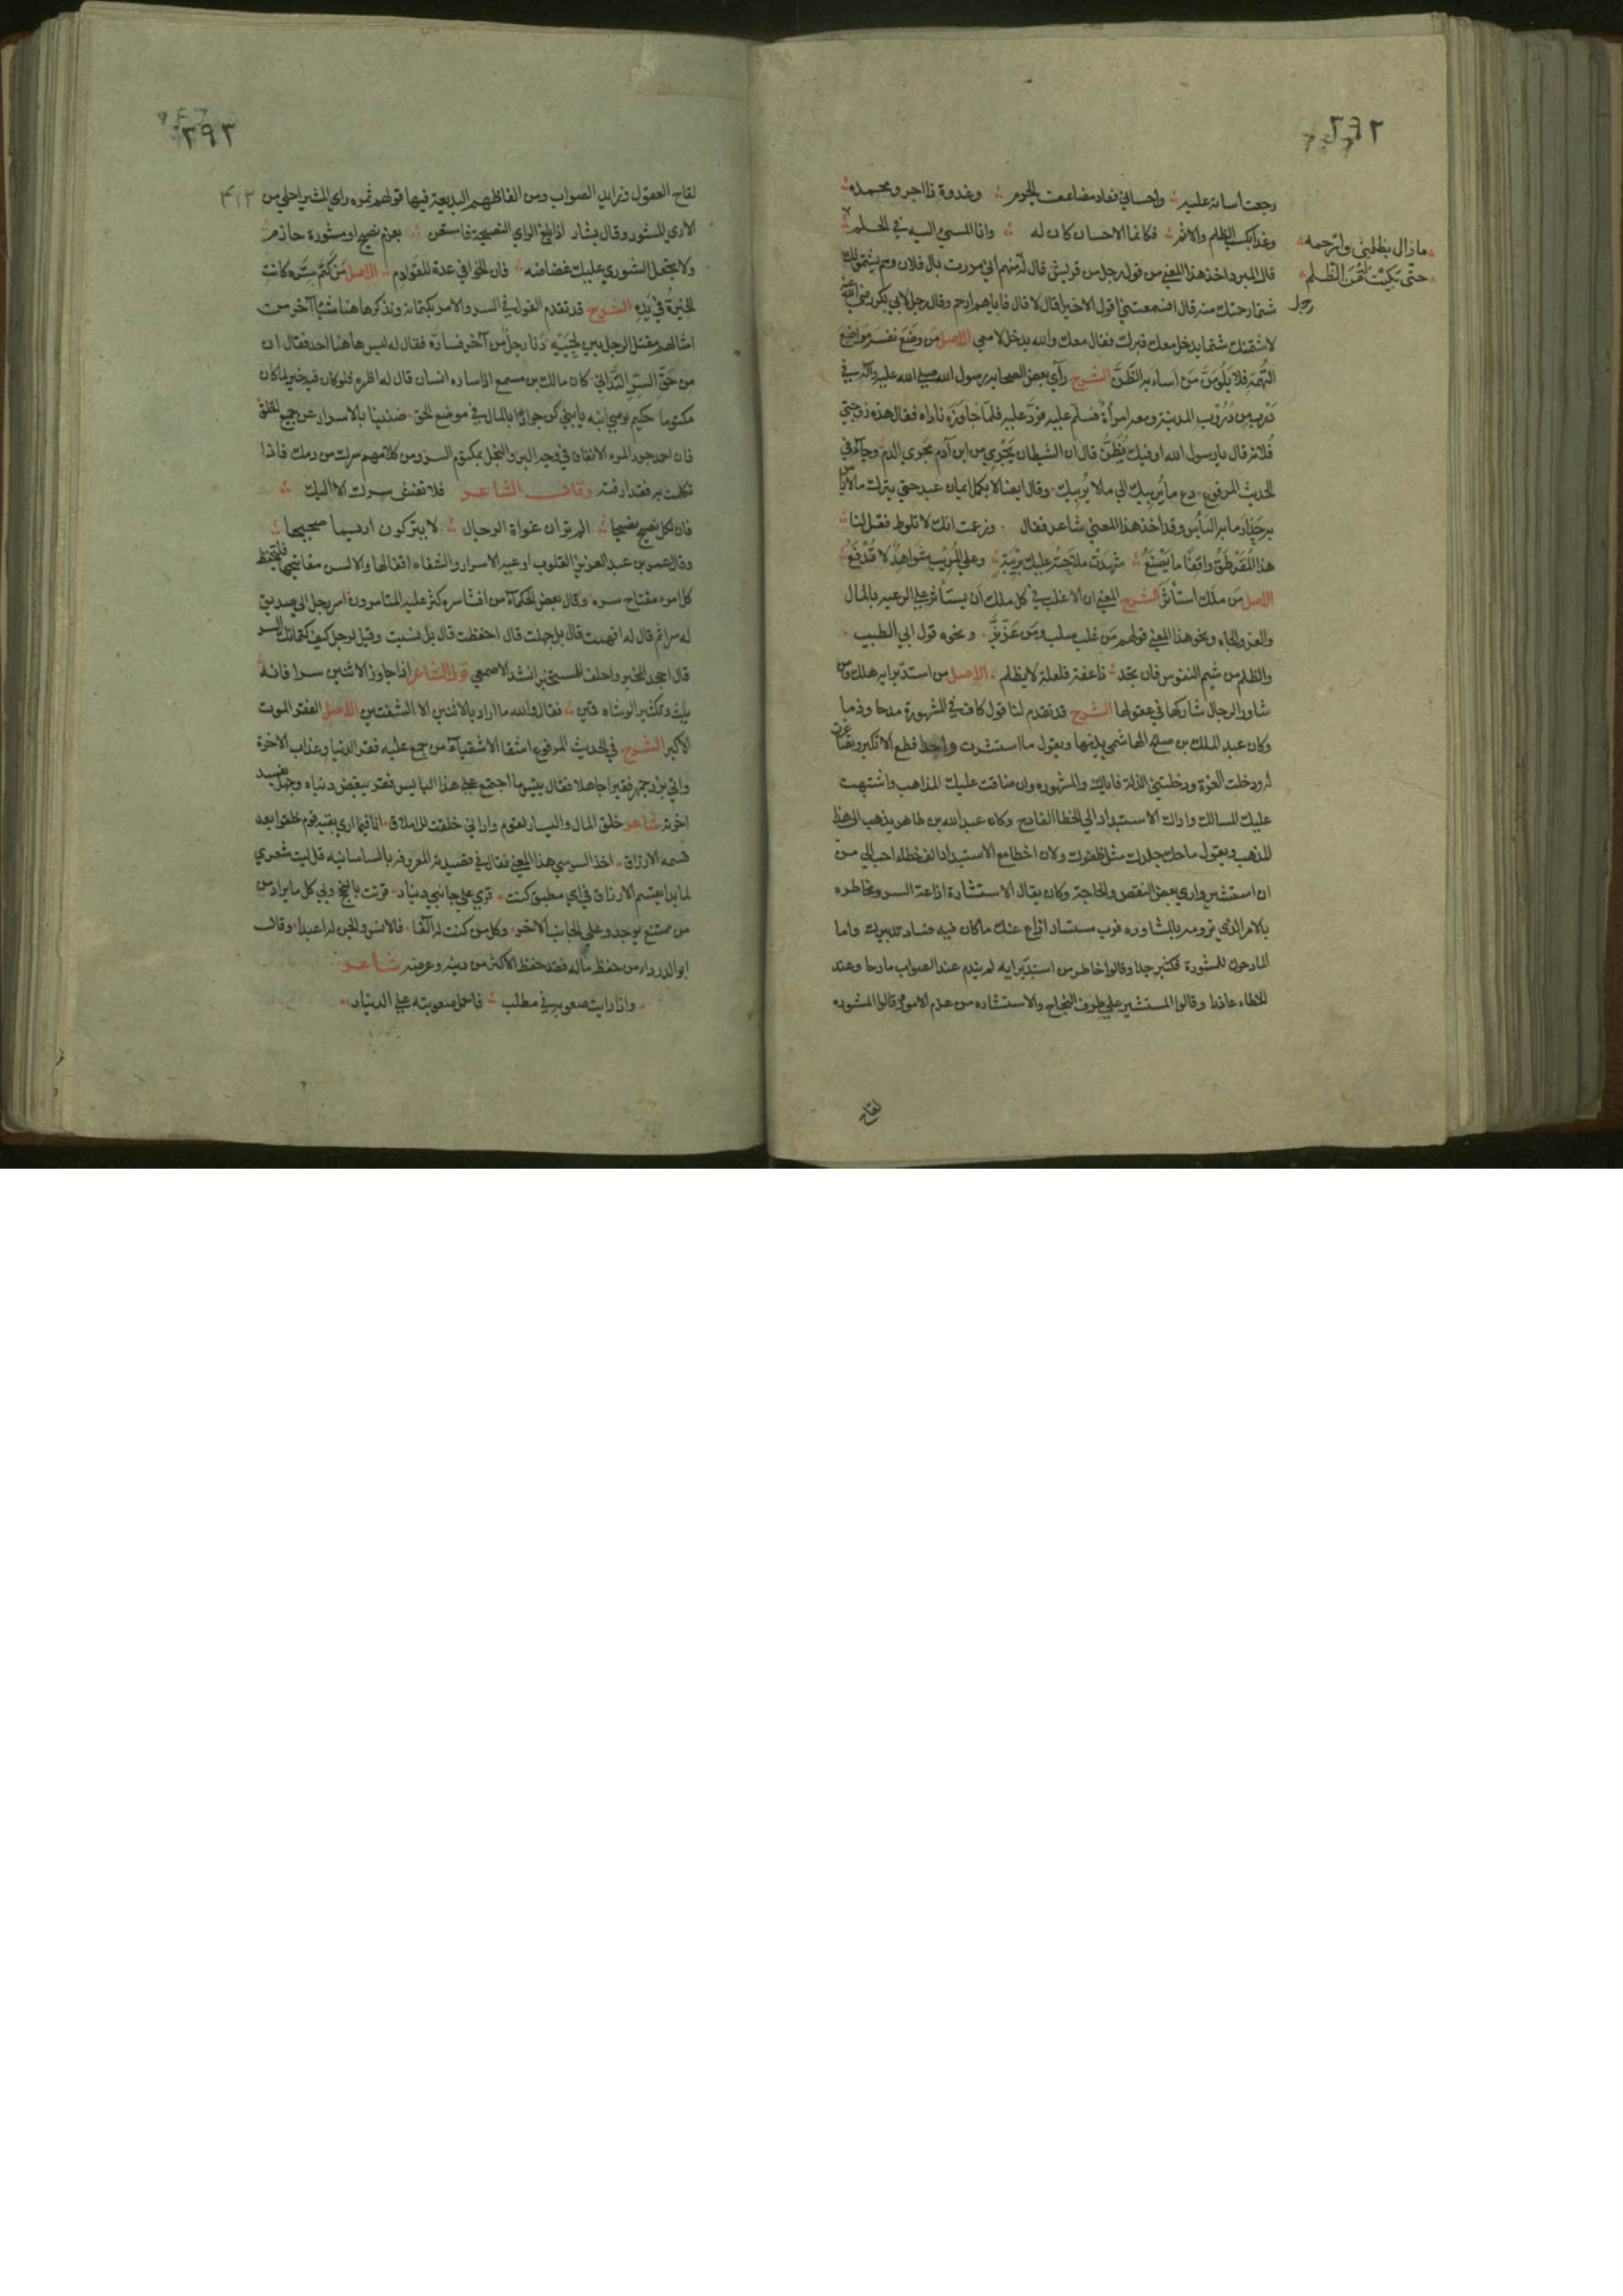 ٢٩٢
رجعت أساته عليه واحساني فعاد مضاعف الجرم وغدوة ذا اجر ومحمدة
وغدا بكسب الظلم والاثم فكانما الاحسان كان له وانا المسيء اليه في الحلم
مازال يظلمني وارحمه
حتى بكيت له من الظلم
قال المبرد اخذ هذا المعنى من قول رجل من قريش قال له منهم اني مررت بال فلان وهم يشتمونك
شتما رحمتك منه قال افسمعتني اقول الا خيرا قال لا قال فاياهم ارحم وقال رجل لابي بكر رضي الله عنه
رجل
لاشتمنك شتما يدخل معك قبرك فقال معك والله يدخل لا معي الاصل من وضع نفسه مواضع
التهمة فلا يلومن من اساء به الظن الشرح رأي بعض الصحابه رسول الله صلى الله عليه وآله في
درب من دروب المدينة ومعه امرأة فسلم عليه فرد عليه فلما جاوزه ناداه فقال هذه زوجتي
فلانة قال يا رسول الله اوفيك يظن قال ان الشيطان يجري من ابن آدم مجرى الدم وجاء في
الحديث المرفوع دع ما يريبك الى ما لا يريبك وقال ايضا لا يكمل ايمان عبد حتى يترك ما لا بأس
به حذار ما به البأس وقد اخذ هذا المعنى شاعر فقال وزعمت انك لا تلوط فقل لنا
هذا المقرطق واقفا ما يصنع شهدت ملاحته عليك بريبة وعلى المريب شواهد لا تدفع
الاصل من ملك استأثر الشرح المعنى ان الاغلب في كل ملك ان يستأثر على الرعية بالمال
والعز والجاه ونحو هذا المعنى قولهم من غلب سلب ومن عز بز ونحوه قول ابي الطيب
والظلم من شيم النفوس فان تجد ذا عفة فلعلة لا يظلم الاصل من استبد برأيه هلك ومن
شاور الرجال شاركها في عقولها الشرح قد تقدم لنا قول كاف في المشورة مدحا وذما
وكان عبد الملك بن صالح الهاشمي يذمها ويقول ما استشرت واحدا قط الا تكبر وتصاغرت
له ودخلت العزة ودخلتني الذلة فاياك والمشوره وان ضاقت عليك المذاهب واشتبهت
عليك المسالك واداك الاستبداد الى الخطا الفادح وكان عبد الله بن طاهر يذهب الى هذا
المذهب ويقول ما حك جلدك مثل ظفرك ولان اخطا مع الاستبداد الف خطا احب الي من
ان استشير واري بعين النقص والحاجة وكان يقال الاستشارة اذاعة السر ومخاطره
بالامر الذي ترومه بالمشاوره فرب مستشار اذاع عنك ما كان فيه فساد تدبيرك واما
المادحون للمشورة فكثير جدا وقالوا خاطر من استبد برايه لم يندم عند الصواب مادحا وعند
الخطاء عاذرا وقالوا المستشير على طرف النجاح والاستشاره من عزم الامور وقالوا المشوره
لقاح
٢٩٣
٤١٢
لقاح العقول وزايد الصواب ومن الفاظهم البديعة فيها قولهم ثمره راي المشير احلى من
الاري المشور وقال بشار اذا بلغ الراي النصيحة فاستعن بعزم نصيح او مشورة حازم
ولا تجعل الشورى عليك غضاضه فان الخوافي عدة للقوادم الاصل من كتم سره كانت
الخيرة في يده الشرح قد تقدم القول في السر والامر بكتمانه ونذكر هاهنا شيئا آخر من
امثالهم مقتل الرجل بين لحييه دنا رجل من آخر فساره فقال له ليس هاهنا احد فقال ان
من حق السر التداني كان مالك بن مسمع اذا ساره انسان قال له اظهره فلو كان فيه خير لما كان
مكتوما حكيم يوصي ابنه يا بني كن جوادا بالمال في موضع الحق ضنينا بالاسرار عن جميع الخلق
فان احمد جود المرء الانفاق في وجه البر والبخل بمكتوم السر ومن كلامهم سرك من دمك فاذا
تكلمت به فقد ارقته وقال الشاعر فلا تفش سرك الا اليك
فان لكل نصيح نصيحا الم تر ان غواة الرجال لا يتركون اديما صحيحا
وقال عمر بن عبد العزيز القلوب اوعية الاسرار والشفاه اقفالها والالسن مفاتيحها فليحفظ
كل امرء مفتاح سره وقال بعض الحكماء من افشا سره كثر عليه المتامرون اسر رجل الى صديق
له سرا ثم قال له افهمت قال بل جهلت قال احفظت قال بل نسيت وقيل لرجل كيف كتمانك السر
قال اجحد المخبر واحلف للمستخبر انشد الاصمعي قول الشاعر اذا جاوز الاثنين سر فانه
ببث وتكثير الوشاه قمين فقال والله ما اراد بالاثنين الا الشفتين الاصل الفقر الموت
الاكبر الشرح في الحديث المرفوع اشقى الاشقياء من جمع عليه فقر الدنيا وعذاب الاخرة
واتى بزرجمهر فقير جاهلا فقال بئسما اجتمع على هذا البايس فقر ينغص دنياه وجهل يفسد
اخرته شاعر خلق المال واليسار لقوم واراني خلقت للاملاق انا فيما ارى بقية قوم خلقوا بعد
قسمه الارزاق اخذ السوسي هذا المعنى فقال في قصيدته المعروفه بالساسانيه فليت شعري
لما بدا يقسم الارزاق في اي مطبق كنت ترى على جانبي دنياد قرنت بالنجح وبي كل ما يراد من
من ممتنع يوجد وعلى الجانب الآخر وكل من كنت له آلفا فالانس والجن له اعبد وقال
ابو الدرداء من حفظ ماله فقد حفظ الاكثر من دينه وعرضه شاعر
واذا رايت صعوبة في مطلب فاحمل صعوبته على الدينار